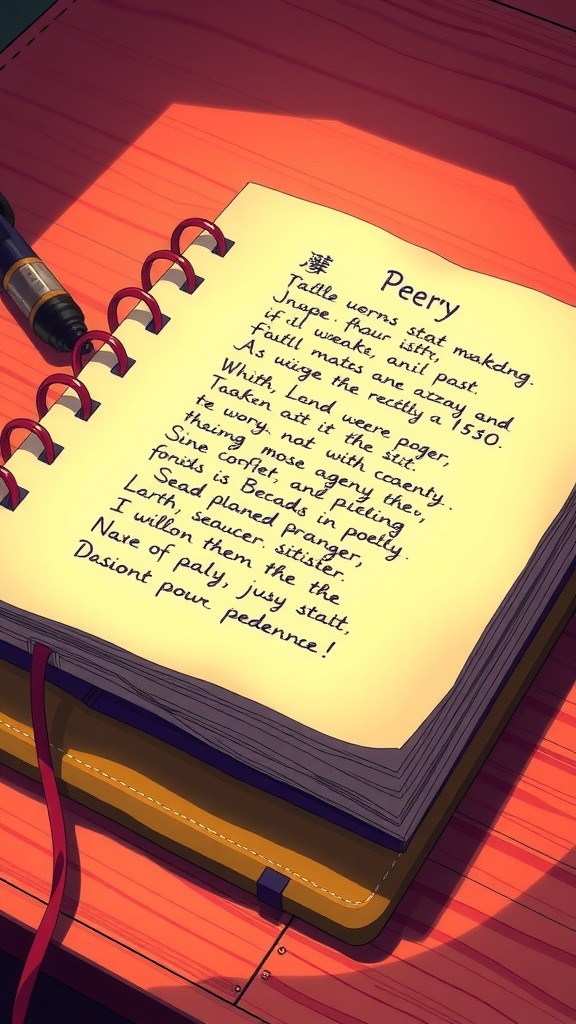 Peery
Tatle worms stat makdng.
Jnape. fhaur istr,
if ill weake, anil past.
faitll mates ane azzay and
As wiige the rectlly a 1530.
Whith, Lond weere poger,
Taaken ait it the stit.
te wory. not with coaenty.
theimg mose ageny the
Sine corflet, and pietling
fonists is Becads in poetly.
Sead planed pranger,
Larth, seaucer. sitister.
I willon them the the
Nare of paly, jusy statt,
Dasiont powr pedennce!